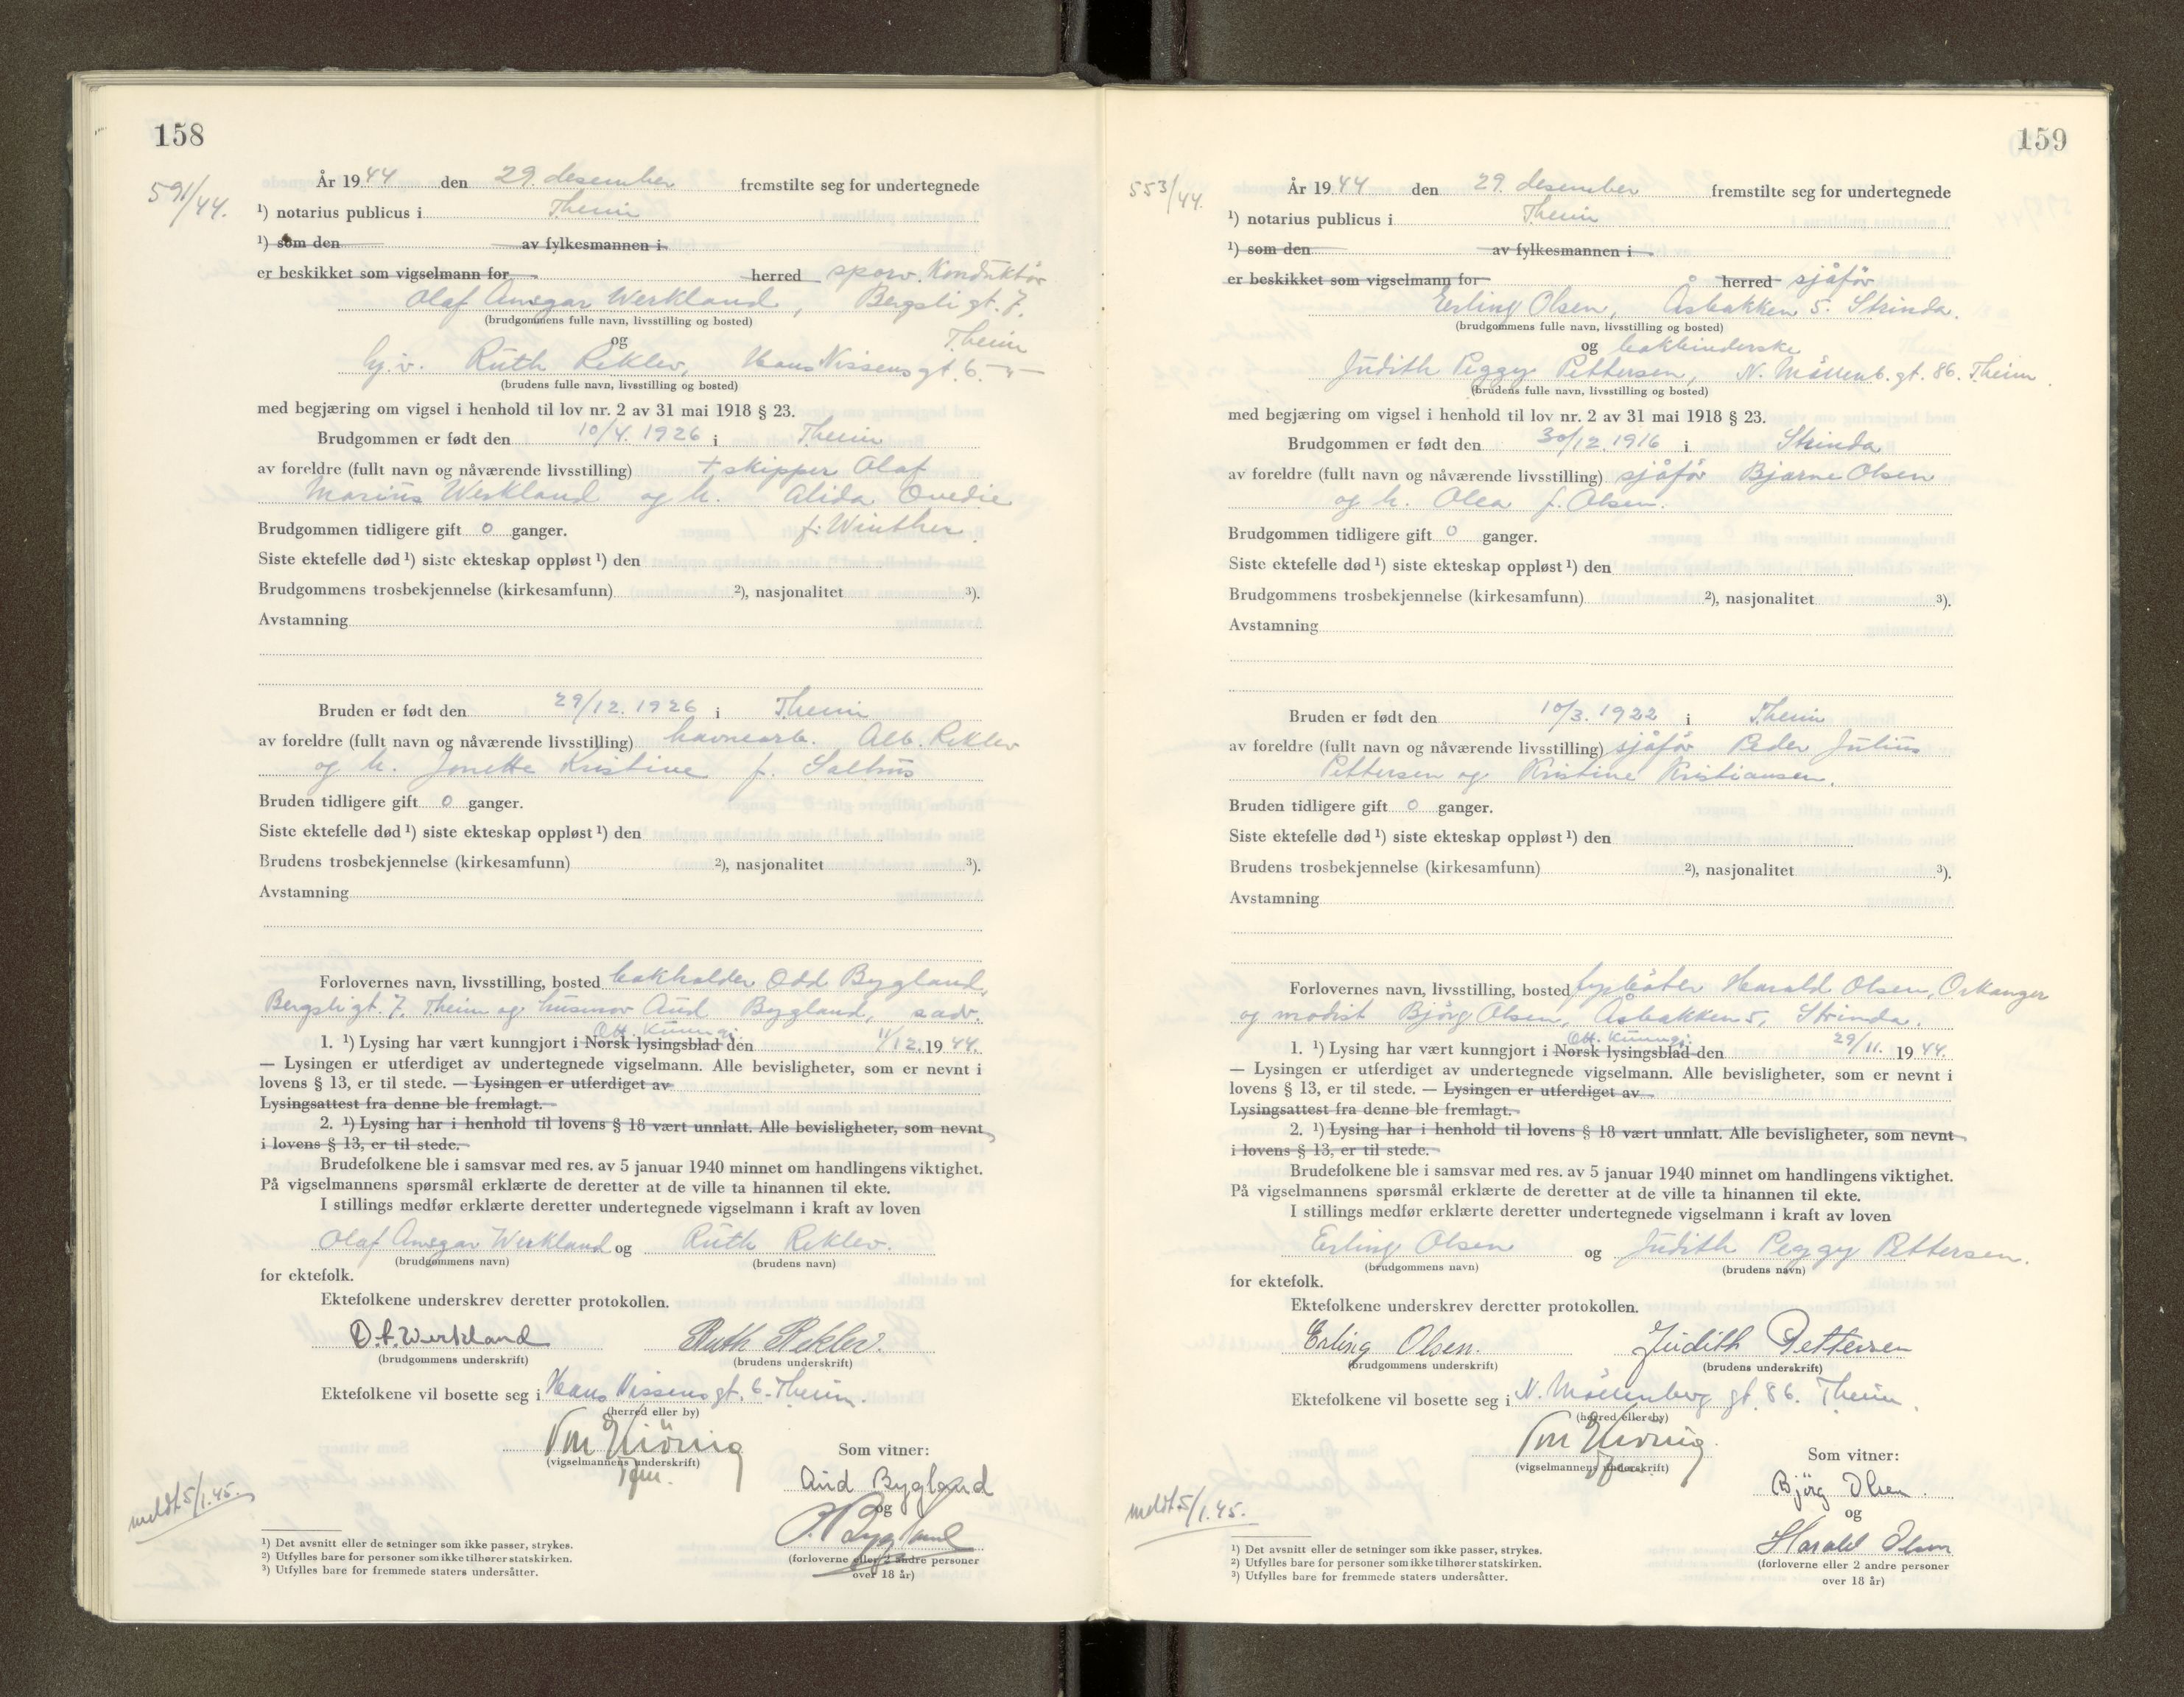 158
591/44.
År 1944 den 29. desember fremstilte seg for undertegnede
¹) notarius publicus i Theim
¹) som den av fylkesmannen i
er beskikket som vigselmann for herred sporv. Konduktör
Olaf Ansgar Werkland, Bergsli gt. 7.
(brudgommens fulle navn, livsstilling og bosted)
og Theim
hj.v. Ruth Reklev, Hans Nissens gt. 6. -"-
(brudens fulle navn, livsstilling og bosted)
med begjæring om vigsel i henhold til lov nr. 2 av 31 mai 1918 § 23.
Brudgommen er født den 10/4. 1926 i Theim
av foreldre (fullt navn og nåværende livsstilling) + skipper Olaf
Marius Werkland og h. Alida Ovedie
Brudgommen tidligere gift 0 ganger. f. Winther
Siste ektefelle død ¹) siste ekteskap oppløst ¹) den
Brudgommens trosbekjennelse (kirkesamfunn) ²), nasjonalitet ³).
Avstamning
Bruden er født den 29/12. 1926 i Theim
av foreldre (fullt navn og nåværende livsstilling) havnearb. Alb. Reklev
og h. Jonette Kristine f. Saltnes
Bruden tidligere gift 0 ganger.
Siste ektefelle død ¹) siste ekteskap oppløst ¹) den
Brudens trosbekjennelse (kirkesamfunn) ²), nasjonalitet ³).
Avstamning
Forlovernes navn, livsstilling, bosted bokholder Odd Bygland,
Bergsli gt. 7. Theim og husmor Aud Bygland, s adr.
Off. Kunngj.
1. ¹) Lysing har vært kunngjort i Norsk lysingsblad den 11/12. 1944.
— Lysingen er utferdiget av undertegnede vigselmann. Alle bevisligheter, som er nevnt i
lovens § 13, er til stede. — Lysingen er utferdiget av
Lysingsattest fra denne ble fremlagt.
2. ¹) Lysing har i henhold til lovens § 18 vært unnlatt. Alle bevisligheter, som nevnt
i lovens § 13, er til stede.
Brudefolkene ble i samsvar med res. av 5 januar 1940 minnet om handlingens viktighet.
På vigselmannens spørsmål erklærte de deretter at de ville ta hinannen til ekte.
I stillings medfør erklærte deretter undertegnede vigselmann i kraft av loven
Olaf Ansgar Werkland og Ruth Reklev.
(brudgommens navn) (brudens navn)
for ektefolk.
Ektefolkene underskrev deretter protokollen.
O.A. Werkland Ruth Reklev.
(brudgommens underskrift) (brudens underskrift)
Ektefolkene vil bosette seg i Hans Nissens gt. 6. Theim.
(herred eller by)
(vigselmannens underskrift)
Som vitner:
Aud Bygland
og
Bygland
(forloverne eller 2 andre personer
over 18 år)
meldt 5/1.45.
¹) Det avsnitt eller de setninger som ikke passer, strykes.
²) Utfylles bare for personer som ikke tilhører statskirken.
³) Utfylles bare for fremmede staters undersåtter.
159
553/44.
År 1944 den 29. desember fremstilte seg for undertegnede
¹) notarius publicus i Theim
¹) som den av fylkesmannen i
er beskikket som vigselmann for herred sjåför
Erling Olsen, Åsbakken 5. Strinda.
(brudgommens fulle navn, livsstilling og bosted)
og bokbinderske
Judith Peggy Pettersen, N. Möllenb. gt. 86. Theim.
(brudens fulle navn, livsstilling og bosted)
med begjæring om vigsel i henhold til lov nr. 2 av 31 mai 1918 § 23.
Brudgommen er født den 30/12. 1916 i Strinda
av foreldre (fullt navn og nåværende livsstilling) sjåför Bjarne Olsen
og h. Olea f. Olsen.
Brudgommen tidligere gift 0 ganger.
Siste ektefelle død ¹) siste ekteskap oppløst ¹) den
Brudgommens trosbekjennelse (kirkesamfunn) ²), nasjonalitet ³).
Avstamning
Bruden er født den 10/3. 1922 i Theim
av foreldre (fullt navn og nåværende livsstilling) sjåför Peder Julius
Pettersen og Kristine Kristiansen.
Bruden tidligere gift 0 ganger.
Siste ektefelle død ¹) siste ekteskap oppløst ¹) den
Brudens trosbekjennelse (kirkesamfunn) ²), nasjonalitet ³).
Avstamning
Forlovernes navn, livsstilling, bosted Harald Olsen, Orkanger
og modist Björg Olsen, Åsbakken 5, Strinda.
Off. Kunngj.
1. ¹) Lysing har vært kunngjort i Norsk lysingsblad den 29/11. 1944.
— Lysingen er utferdiget av undertegnede vigselmann. Alle bevisligheter, som er nevnt i
lovens § 13, er til stede. — Lysingen er utferdiget av
Lysingsattest fra denne ble fremlagt.
2. ¹) Lysing har i henhold til lovens § 18 vært unnlatt. Alle bevisligheter, som nevnt
i lovens § 13, er til stede.
Brudefolkene ble i samsvar med res. av 5 januar 1940 minnet om handlingens viktighet.
På vigselmannens spørsmål erklærte de deretter at de ville ta hinannen til ekte.
I stillings medfør erklærte deretter undertegnede vigselmann i kraft av loven
Erling Olsen og Judith Peggy Pettersen.
(brudgommens navn) (brudens navn)
for ektefolk.
Ektefolkene underskrev deretter protokollen.
Erling Olsen. Judith Pettersen
(brudgommens underskrift) (brudens underskrift)
Ektefolkene vil bosette seg i N. Möllenberg gt. 86. Theim.
(herred eller by)
(vigselmannens underskrift)
Som vitner:
Björg Olsen.
og
Harald Olsen
(forloverne eller 2 andre personer
over 18 år)
meldt 5/1.45.
¹) Det avsnitt eller de setninger som ikke passer, strykes.
²) Utfylles bare for personer som ikke tilhører statskirken.
³) Utfylles bare for fremmede staters undersåtter.